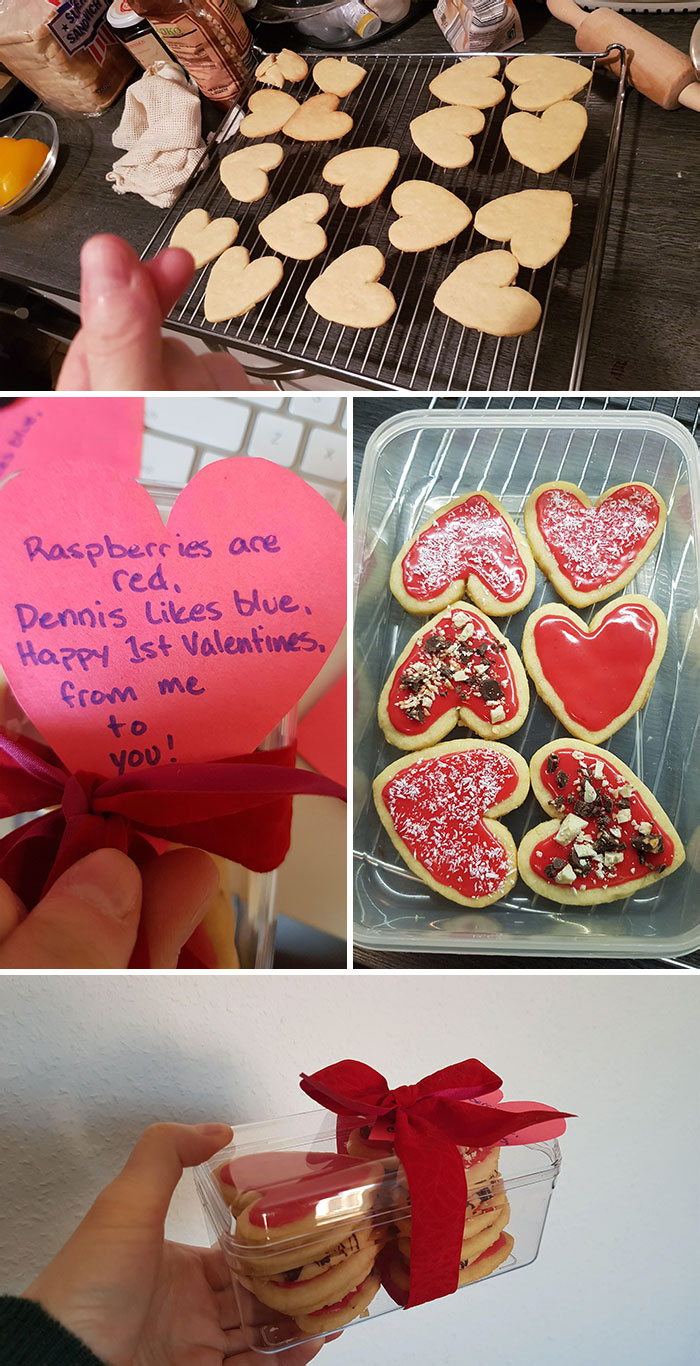 SANDWICH
blue,
Raspberries are
red,
Dennis likes blue,
Happy 1st Valentines,
from me
to
you!